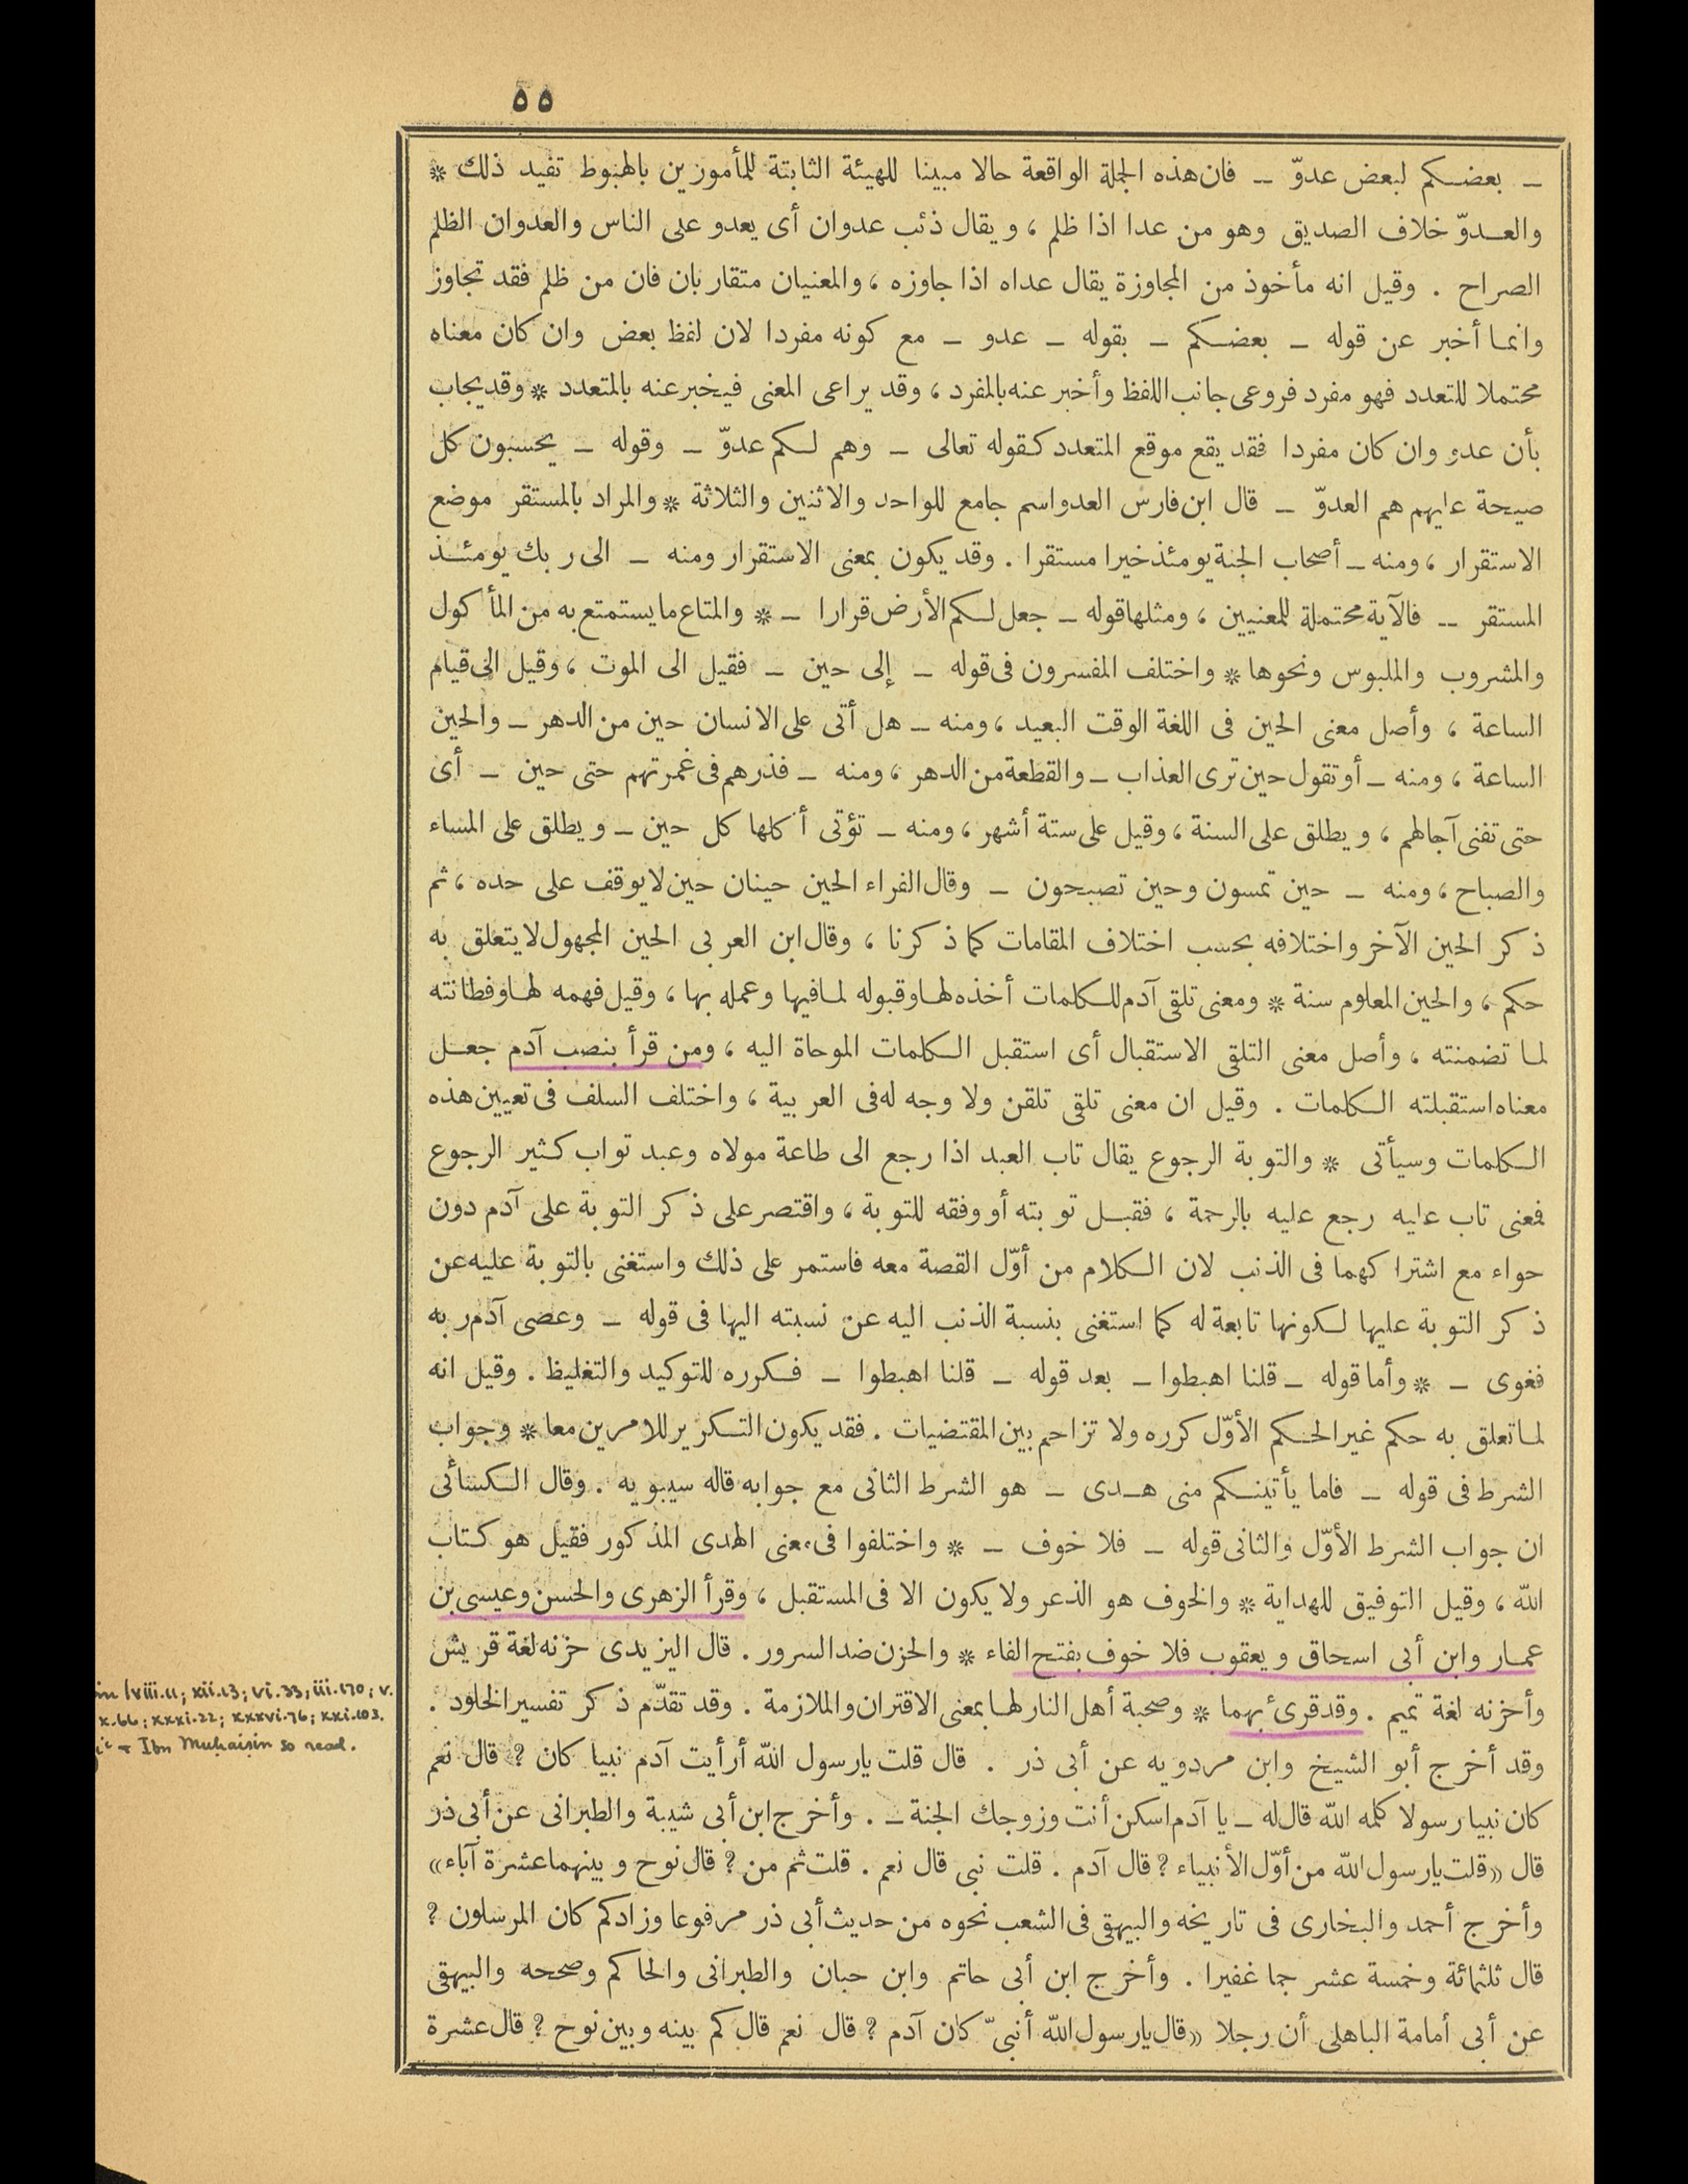 ٥٥
ـ بعضكم لبعض عدوّ ـ فان هذه الجملة الواقعة حالا مبينا للهيئة الثابتة للمأمورين بالهبوط تفيد ذلك *
والعدوّ خلاف الصديق وهو من عدا اذا ظلم ، ويقال ذئب عدوان أى يعدو على الناس والعدوان الظلم
الصراح . وقيل انه مأخوذ من المجاوزة يقال عداه اذا جاوزه ، والمعنيان متقاربان فان من ظلم فقد تجاوز
وانما أخبر عن قوله ـ بعضكم ـ بقوله ـ عدو ـ مع كونه مفردا لان لفظ بعض وان كان معناه
محتملا للتعدد فهو مفرد فروعى جانب اللفظ وأخبر عنه بالمفرد ، وقد يراعى المعنى فيخبر عنه بالمتعدد * وقد يجاب
بأن عدو وان كان مفردا فقد يقع موقع المتعدد كقوله تعالى ـ وهم لكم عدوّ ـ وقوله ـ يحسبون كل
صيحة عليهم هم العدوّ ـ قال ابن فارس العدو اسم جامع للواحد والاثنين والثلاثة * والمراد بالمستقر موضع
الاستقرار ، ومنه ـ أصحاب الجنة يومئذ خيرا مستقرا . وقد يكون بمعنى الاستقرار ومنه ـ الى ربك يومئذ
المستقر ـ فالآية محتملة للمعنيين ، ومثلها قوله ـ جعل لكم الأرض قرارا ـ * والمتاع ما يستمتع به من المأكول
والمشروب والملبوس ونحوها * واختلف المفسرون فى قوله ـ إلى حين ـ فقيل الى الموت ، وقيل الى قيام
الساعة ، وأصل معنى الحين فى اللغة الوقت البعيد ، ومنه ـ هل أتى على الانسان حين من الدهر ـ والحين
الساعة ، ومنه ـ أو تقول حين ترى العذاب ـ والقطعة من الدهر ، ومنه ـ فذرهم فى غمرتهم حتى حين ـ أى
حتى تفنى آجالهم ، ويطلق على السنة ، وقيل على ستة أشهر ، ومنه ـ تؤتى أكلها كل حين ـ ويطلق على المساء
والصباح ، ومنه ـ حين تمسون وحين تصبحون ـ وقال الفراء الحين حينان حين لا يوقف على حده ، ثم
ذكر الحين الآخر واختلافه بحسب اختلاف المقامات كما ذكرنا ، وقال ابن العربى الحين المجهول لا يتعلق به
حكم ، والحين المعلوم سنة * ومعنى تلقى آدم للكلمات أخذه لها وقبوله لما فيها وعمله بها ، وقيل فهمه لها وفطانته
لما تضمنته ، وأصل معنى التلقى الاستقبال أى استقبل الكلمات الموحاة اليه ، ومن قرأ بنصب آدم جعل
معناه استقبلته الكلمات . وقيل ان معنى تلقى تلقن ولا وجه له فى العربية ، واختلف السلف فى تعيين هذه
الكلمات وسيأتى * والتوبة الرجوع يقال تاب العبد اذا رجع الى طاعة مولاه وعبد تواب كثير الرجوع
فمعنى تاب عليه رجع عليه بالرحمة ، فقبل توبته أو وفقه للتوبة ، واقتصر على ذكر التوبة على آدم دون
حواء مع اشتراكهما فى الذنب لان الكلام من أوّل القصة معه فاستمر على ذلك واستغنى بالتوبة عليه عن
ذكر التوبة عليها لكونها تابعة له كما استغنى بنسبة الذنب اليه عن نسبته اليها فى قوله ـ وعصى آدم ربه
فغوى ـ * وأما قوله ـ قلنا اهبطوا ـ بعد قوله ـ قلنا اهبطوا ـ فكرره للتوكيد والتغليظ . وقيل انه
لما تعلق به حكم غير الحكم الأوّل كرره ولا تزاحم بين المقتضيات . فقد يكون التكرير للامرين معا * وجواب
الشرط فى قوله ـ فاما يأتينكم منى هدى ـ هو الشرط الثانى مع جوابه قاله سيبويه . وقال الكسائى
ان جواب الشرط الأوّل والثانى قوله ـ فلا خوف ـ * واختلفوا فى معنى الهدى المذكور فقيل هو كتاب
الله ، وقيل التوفيق للهداية * والخوف هو الذعر ولا يكون الا فى المستقبل ، وقرأ الزهرى والحسن وعيسى بن
عمار وابن أبى اسحاق ويعقوب فلا خوف بفتح الفاء * والحزن ضد السرور . قال اليزيدى حزنه لغة قريش
وأحزنه لغة تميم . وقد قرئ بهما * وصحبة أهل النار لها بمعنى الاقتران والملازمة . وقد تقدّم ذكر تفسير الخلود .
وقد أخرج أبو الشيخ وابن مردويه عن أبى ذر . قال قلت يا رسول الله أرأيت آدم نبيا كان ? قال نعم
كان نبيا رسولا كلمه الله قال له ـ يا آدم اسكن أنت وزوجك الجنة ـ . وأخرج ابن أبى شيبة والطبرانى عن أبى ذر
قال «قلت يا رسول الله من أوّل الأنبياء ? قال آدم . قلت نبى قال نعم . قلت ثم من ? قال نوح وبينهما عشرة آباء»
وأخرج أحمد والبخارى فى تاريخه والبيهقى فى الشعب نحوه من حديث أبى ذر مرفوعا وزاد كم كان المرسلون ?
قال ثلثمائة وخمسة عشر جما غفيرا . وأخرج ابن أبى حاتم وابن حبان والطبرانى والحاكم وصححه والبيهقى
عن أبى أمامة الباهلى أن رجلا «قال يا رسول الله أنبىّ كان آدم ? قال نعم قال كم بينه وبين نوح ? قال عشرة
in /viii.11; xii.13; vi.33; iii.170; v.
x.66; xxxi.22; xxxvi.76; xxi.103.
+ Ibn Muḥaiṣin so read.